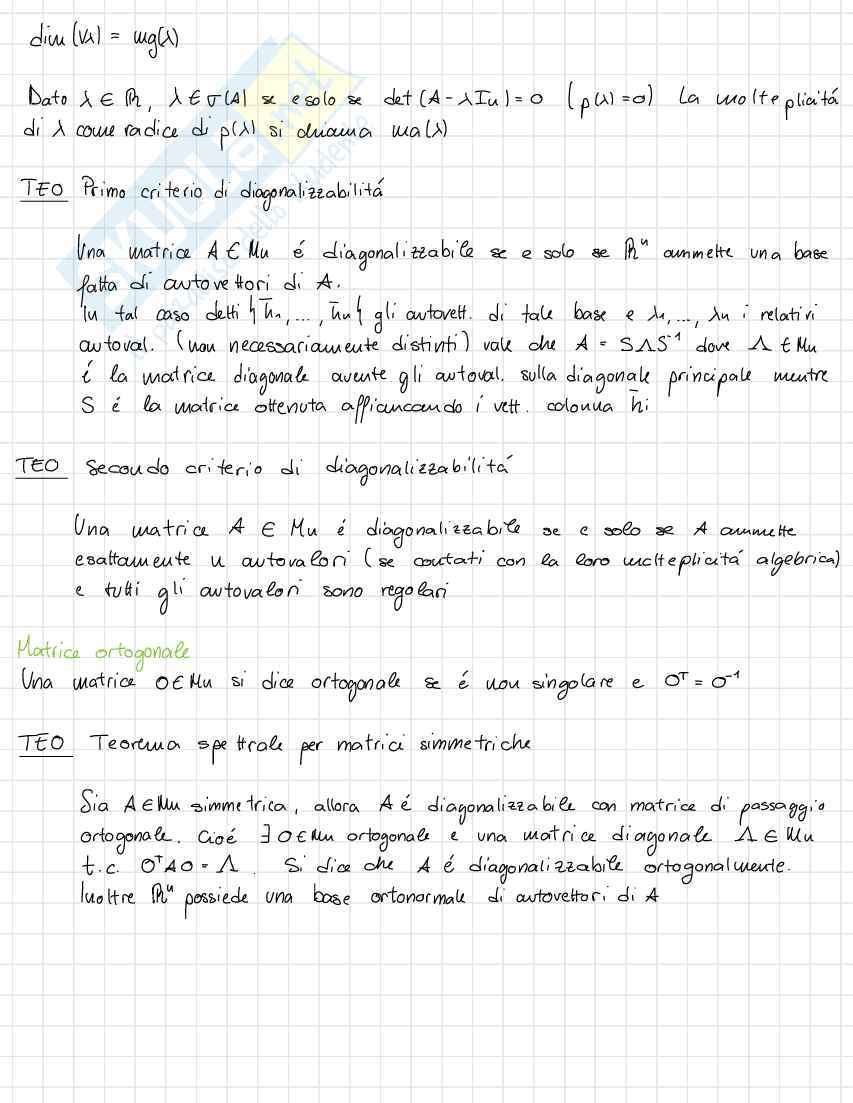 dim (Vλ) = mg(λ)
Dato λ ∈ ℝ, λ ∈ σ(A) se e solo se det (A - λIn) = 0 (p(λ) = 0) La molteplicitá
di λ come radice di p(λ) si chiama ma(λ)
TEO Primo criterio di diagonalizzabilitá
Una matrice A ∈ Mn é diagonalizzabile se e solo se ℝⁿ ammette una base
fatta di autovettori di A.
In tal caso detti {h̅₁, ..., h̅n} gli autovett. di tale base e λ₁, ..., λn i relativi
autoval. (non necessariamente distinti) vale che A = SΛS⁻¹ dove Λ ∈ Mn
é la matrice diagonale avente gli autoval. sulla diagonale principale mentre
S é la matrice ottenuta affiancando i vett. colonna h̅i
TEO Secondo criterio di diagonalizzabilitá
Una matrice A ∈ Mn é diagonalizzabile se e solo se A ammette
esattamente n autovalori (se contati con la loro molteplicitá algebrica)
e tutti gli autovalori sono regolari
Matrice ortogonale
Una matrice O ∈ Mn si dice ortogonale se é non singolare e Oᵀ = O⁻¹
TEO Teorema spettrale per matrici simmetriche
Sia A ∈ Mn simmetrica, allora A é diagonalizzabile con matrice di passaggio
ortogonale. Cioé ∃ O ∈ Mn ortogonale e una matrice diagonale Λ ∈ Mn
t.c. OᵀAO = Λ. Si dice che A é diagonalizzabile ortogonalmente.
Inoltre ℝⁿ possiede una base ortonormale di autovettori di A